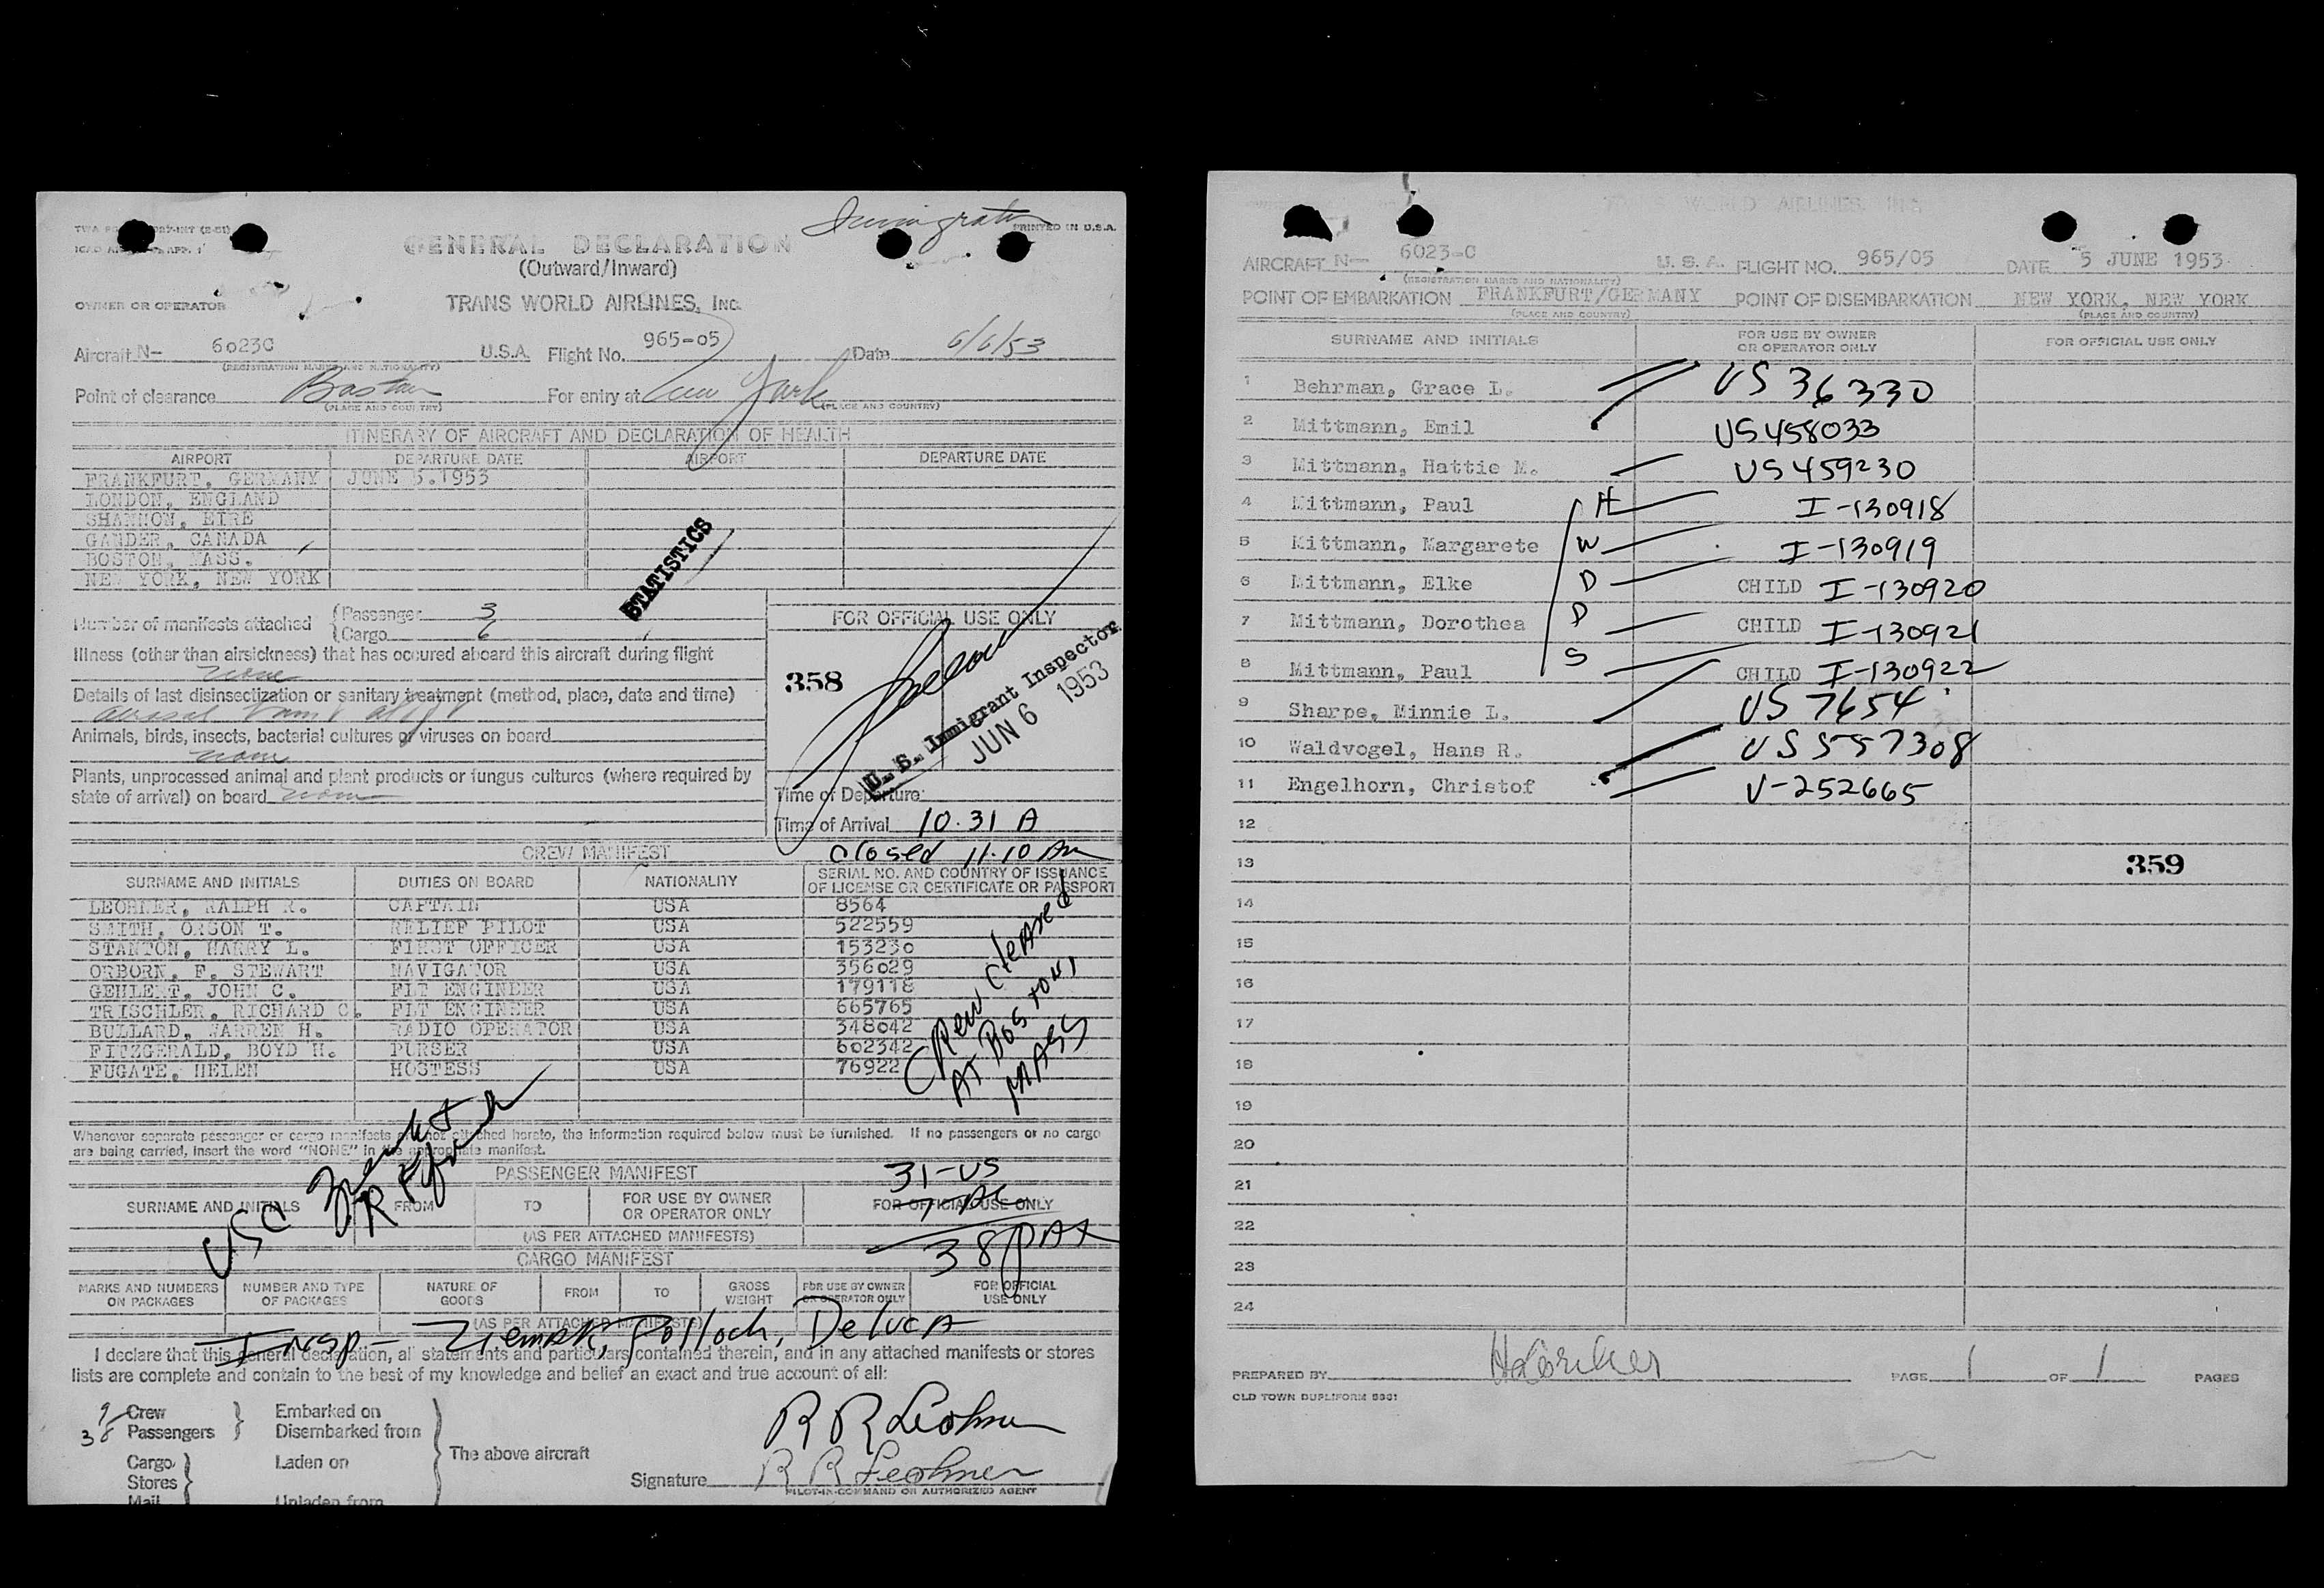 Immigration
PRINTED IN U.S.A.
GENERAL DECLARATION
(Outward/Inward)
OWNER OR OPERATOR
TRANS WORLD AIRLINES, INC.
Aircraft N- 6023C U.S.A. Flight No. 965-05 Date 6/6/53
(REGISTRATION MARKS AND NATIONALITY)
Point of clearance Boston For entry at New York
(PLACE AND COUNTRY) (PLACE AND COUNTRY)
ITINERARY OF AIRCRAFT AND DECLARATION OF HEALTH
AIRPORT DEPARTURE DATE AIRPORT DEPARTURE DATE
FRANKFURT, GERMANY JUNE 5.1953
LONDON, ENGLAND
SHANNON, EIRE
GANDER, CANADA
BOSTON, MASS.
NEW YORK, NEW YORK
STATISTICS
Number of manifests attached Passenger 3
Cargo 6
Illness (other than airsickness) that has occured aboard this aircraft during flight
none
Details of last disinsectization or sanitary treatment (method, place, date and time)
Animals, birds, insects, bacterial cultures or viruses on board
none
Plants, unprocessed animal and plant products or fungus cultures (where required by
state of arrival) on board none
FOR OFFICIAL USE ONLY
358
U. S. Immigrant Inspector
JUN 6 1953
Time of Departure:
Time of Arrival 10.31 A
closed 11.10 Am
CREW MANIFEST
SURNAME AND INITIALS DUTIES ON BOARD NATIONALITY SERIAL NO. AND COUNTRY OF ISSUANCE
OF LICENSE OR CERTIFICATE OR PASSPORT
LEOHNER, RALPH R. CAPTAIN USA 8564
SMITH, ORSON T. RELIEF PILOT USA 522559
STANTON, HARRY L. FIRST OFFICER USA 153230
ORBORN, F. STEWART NAVIGATOR USA 356029
GEHLERT, JOHN C. FLT ENGINEER USA 179118
TRISCHLER, RICHARD C. FLT ENGINEER USA 665765
BULLARD, WARREN H. RADIO OPERATOR USA 348042
FITZGERALD, BOYD H. PURSER USA 602342
FUGATE, HELEN HOSTESS USA 76922
Crew cleared
AT Boston,
MASS
Whenever separate passenger or cargo manifests are not attached hereto, the information required below must be furnished. If no passengers or no cargo
are being carried, insert the word "NONE" in the appropriate manifest.
PASSENGER MANIFEST
31-US
SURNAME AND INITIALS FROM TO FOR USE BY OWNER
OR OPERATOR ONLY FOR OFFICIAL USE ONLY
7-AL
(AS PER ATTACHED MANIFESTS)
38 PAX
USC
CARGO MANIFEST
MARKS AND NUMBERS
ON PACKAGES NUMBER AND TYPE
OF PACKAGES NATURE OF
GOODS FROM TO GROSS
WEIGHT FOR USE BY OWNER
OR OPERATOR ONLY FOR OFFICIAL
USE ONLY
(AS PER ATTACHED MANIFESTS)
Insp - Ziemak, Pollock, DeLucA
I declare that this general declaration, all statements and particulars contained therein, and in any attached manifests or stores
lists are complete and contain to the best of my knowledge and belief an exact and true account of all:
9 Crew Embarked on
38 Passengers Disembarked from
The above aircraft
Cargo Laden on
Stores
Mail Unladen from
R R Leohner
Signature R R Leohner
PILOT-IN-COMMAND OR AUTHORIZED AGENT
TRANS WORLD AIRLINES, INC.
AIRCRAFT N- 6023-C U. S. A. FLIGHT NO. 965/05 DATE 5 JUNE 1953
(REGISTRATION MARKS AND NATIONALITY)
POINT OF EMBARKATION FRANKFURT/GERMANY POINT OF DISEMBARKATION NEW YORK, NEW YORK
(PLACE AND COUNTRY) (PLACE AND COUNTRY)
SURNAME AND INITIALS FOR USE BY OWNER
OR OPERATOR ONLY FOR OFFICIAL USE ONLY
1 Behrman, Grace L. US 36330
2 Mittmann, Emil US458033
3 Mittmann, Hattie M. US 459230
4 Mittmann, Paul H I-130918
5 Mittmann, Margarete W I-130919
6 Mittmann, Elke D CHILD I-130920
7 Mittmann, Dorothea D CHILD I-130921
8 Mittmann, Paul S CHILD I-130922
9 Sharpe, Minnie L. US 7654
10 Waldvogel, Hans R. US 557308
11 Engelhorn, Christof V-252665
12
13 359
14
15
16
17
18
19
20
21
22
23
24
PREPARED BY PAGE 1 OF 1 PAGES
OLD TOWN DUPLIFORM 9981